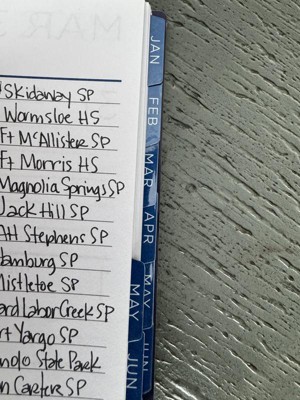 MAR
Skidaway SP
Wormsloe HS
Ft McAllister SP
Ft Morris HS
Magnolia Springs SP
Jack Hill SP
AH Stephens SP
Hamburg SP
Mistletoe SP
ard Labor Creek SP
rt Yargo SP
State Park
Carters SP
JAN
FEB
MAR
APR
MAY
MAY
JUN
JUN